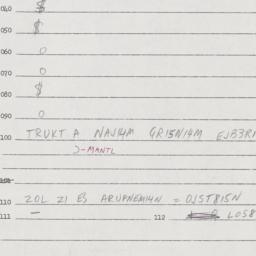 040 $
050 $
060 0
070 0
080 $
090 0
100 TRUKT A NAVI4M GRI5NI4M EJB3R
J-MANTL
101
110 20L ZI ES ARUPNEMI4N = OJST8I5N
111 — 112 LOS8